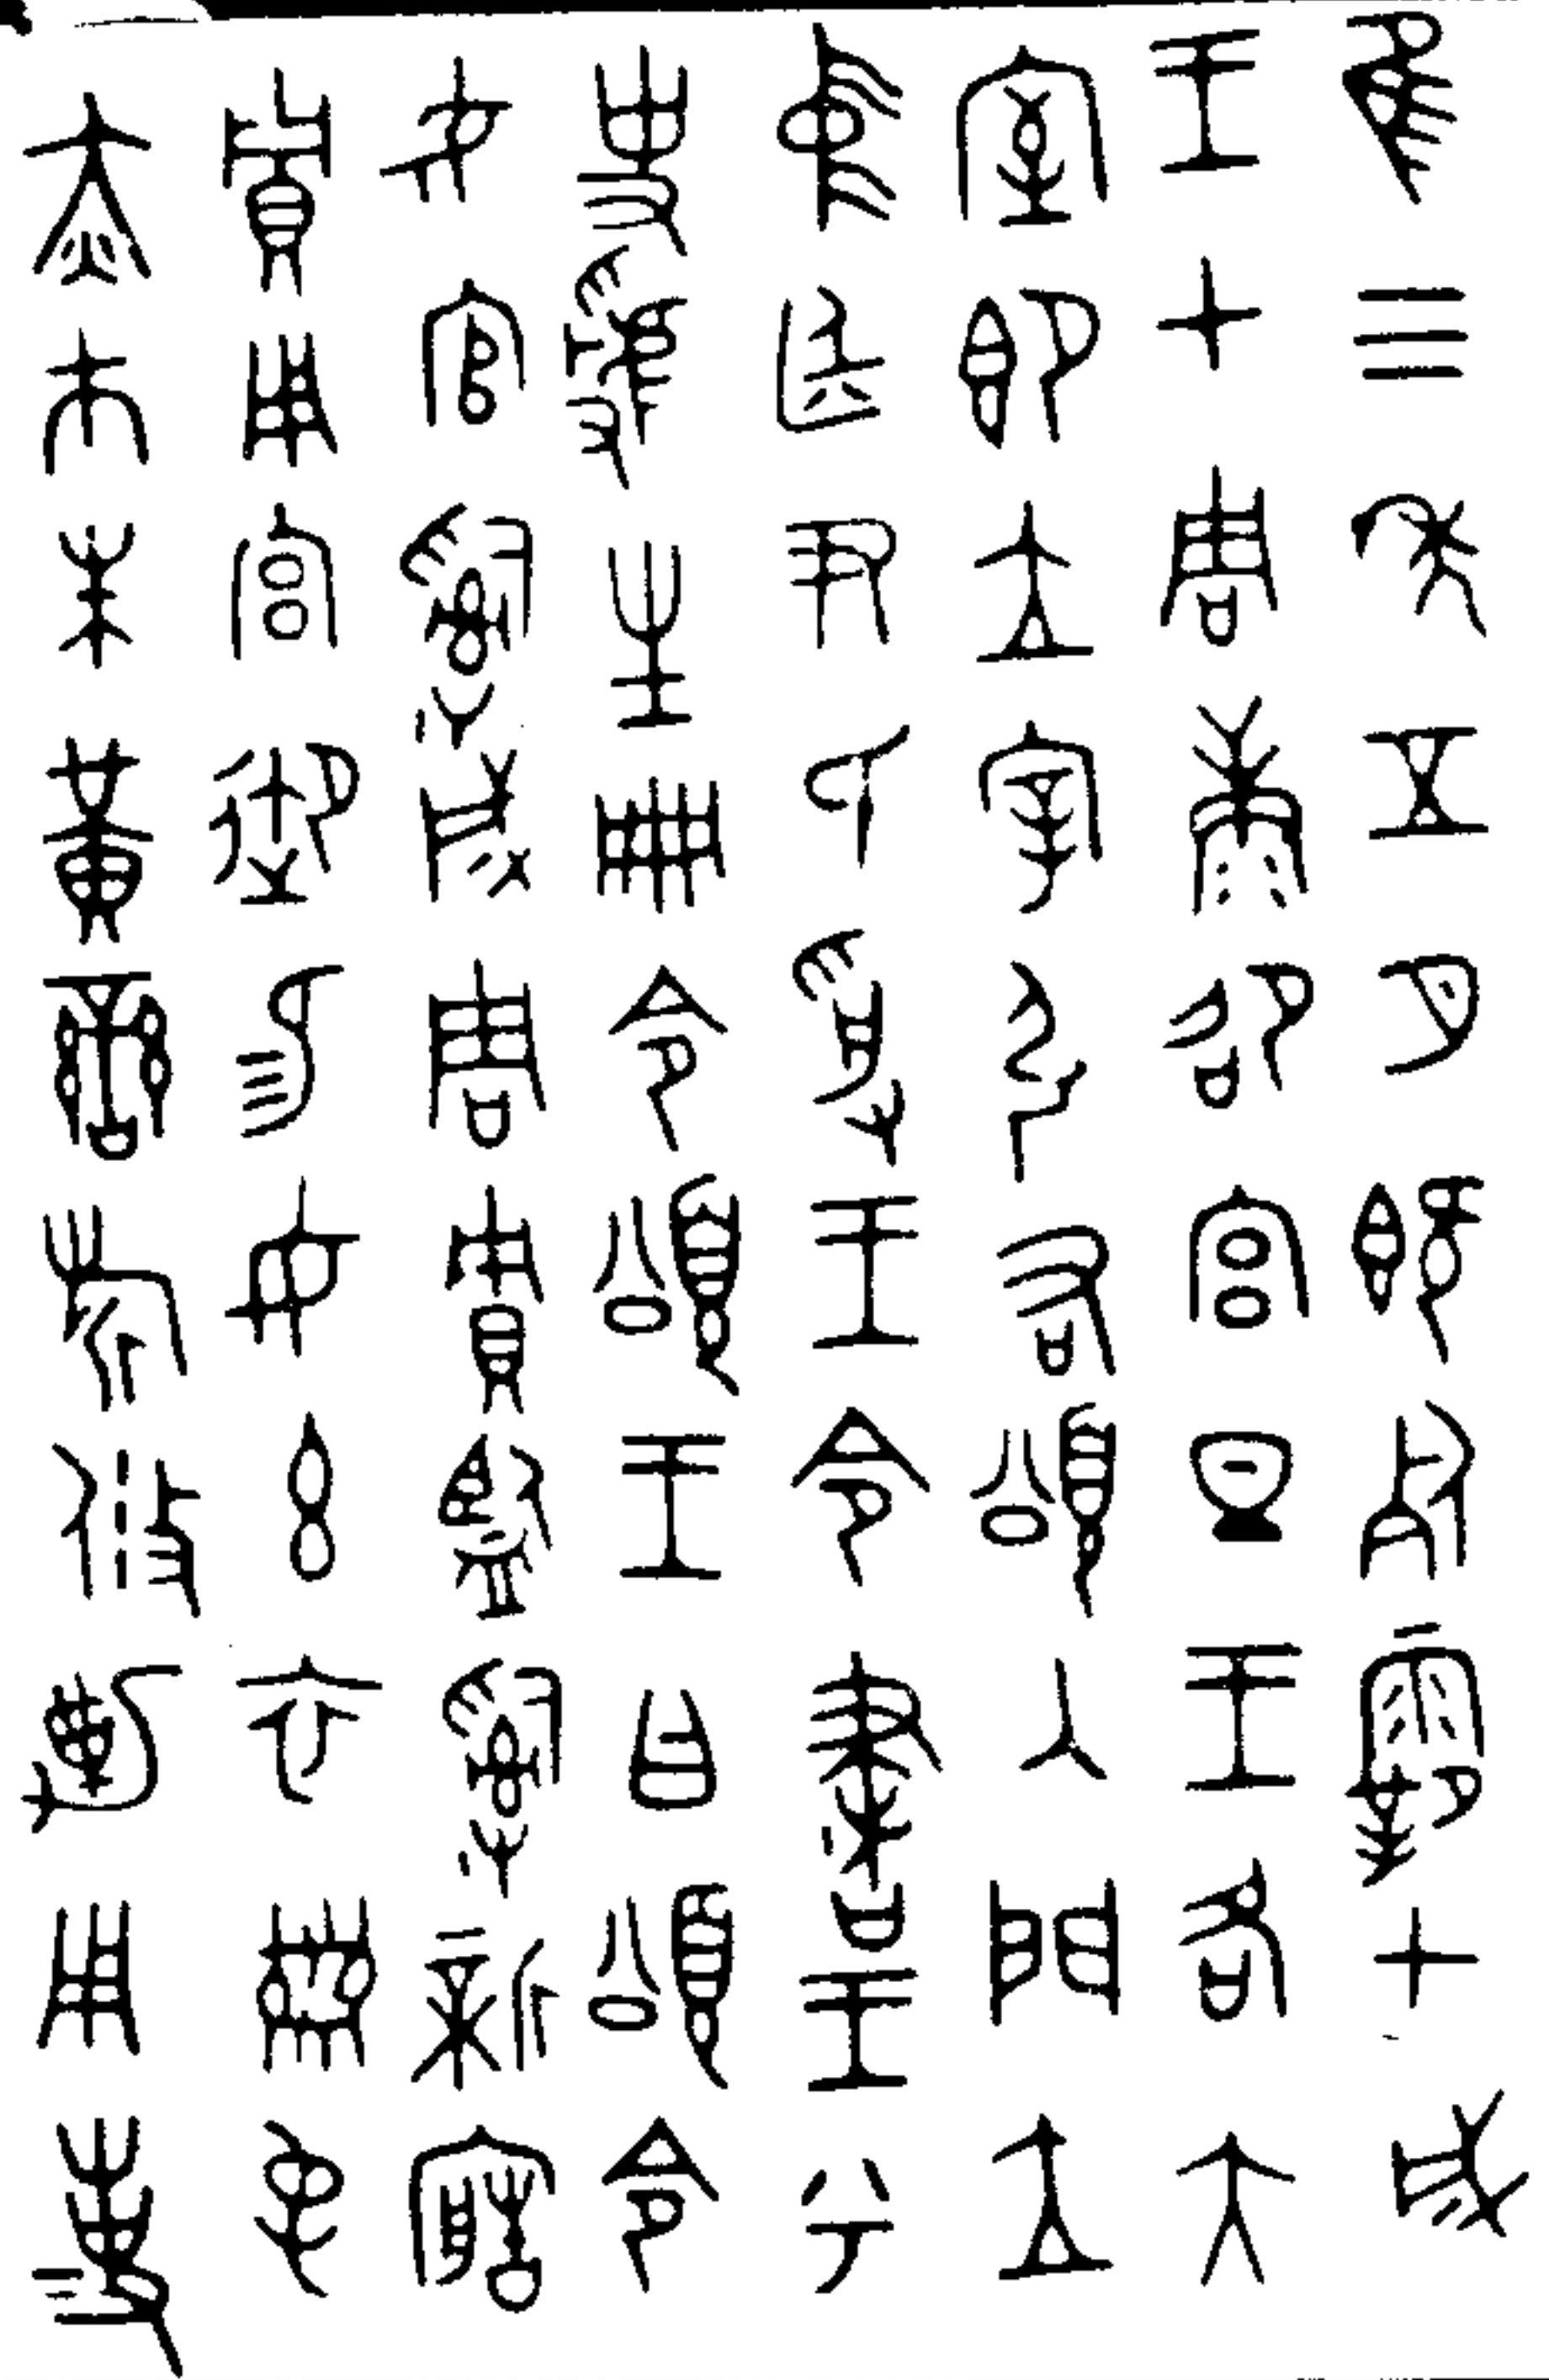 隹三年五月既死霸甲戌
王才周康卲宮旦王各大
室即立宰引右頌入門立
中廷尹氏受王令書王乎
史虢生冊令頌王曰頌令
女官𤔲成周貯監𤔲新造
貯用宮御易女玄衣黹屯
赤巿朱黃䜌旂攸勒用事